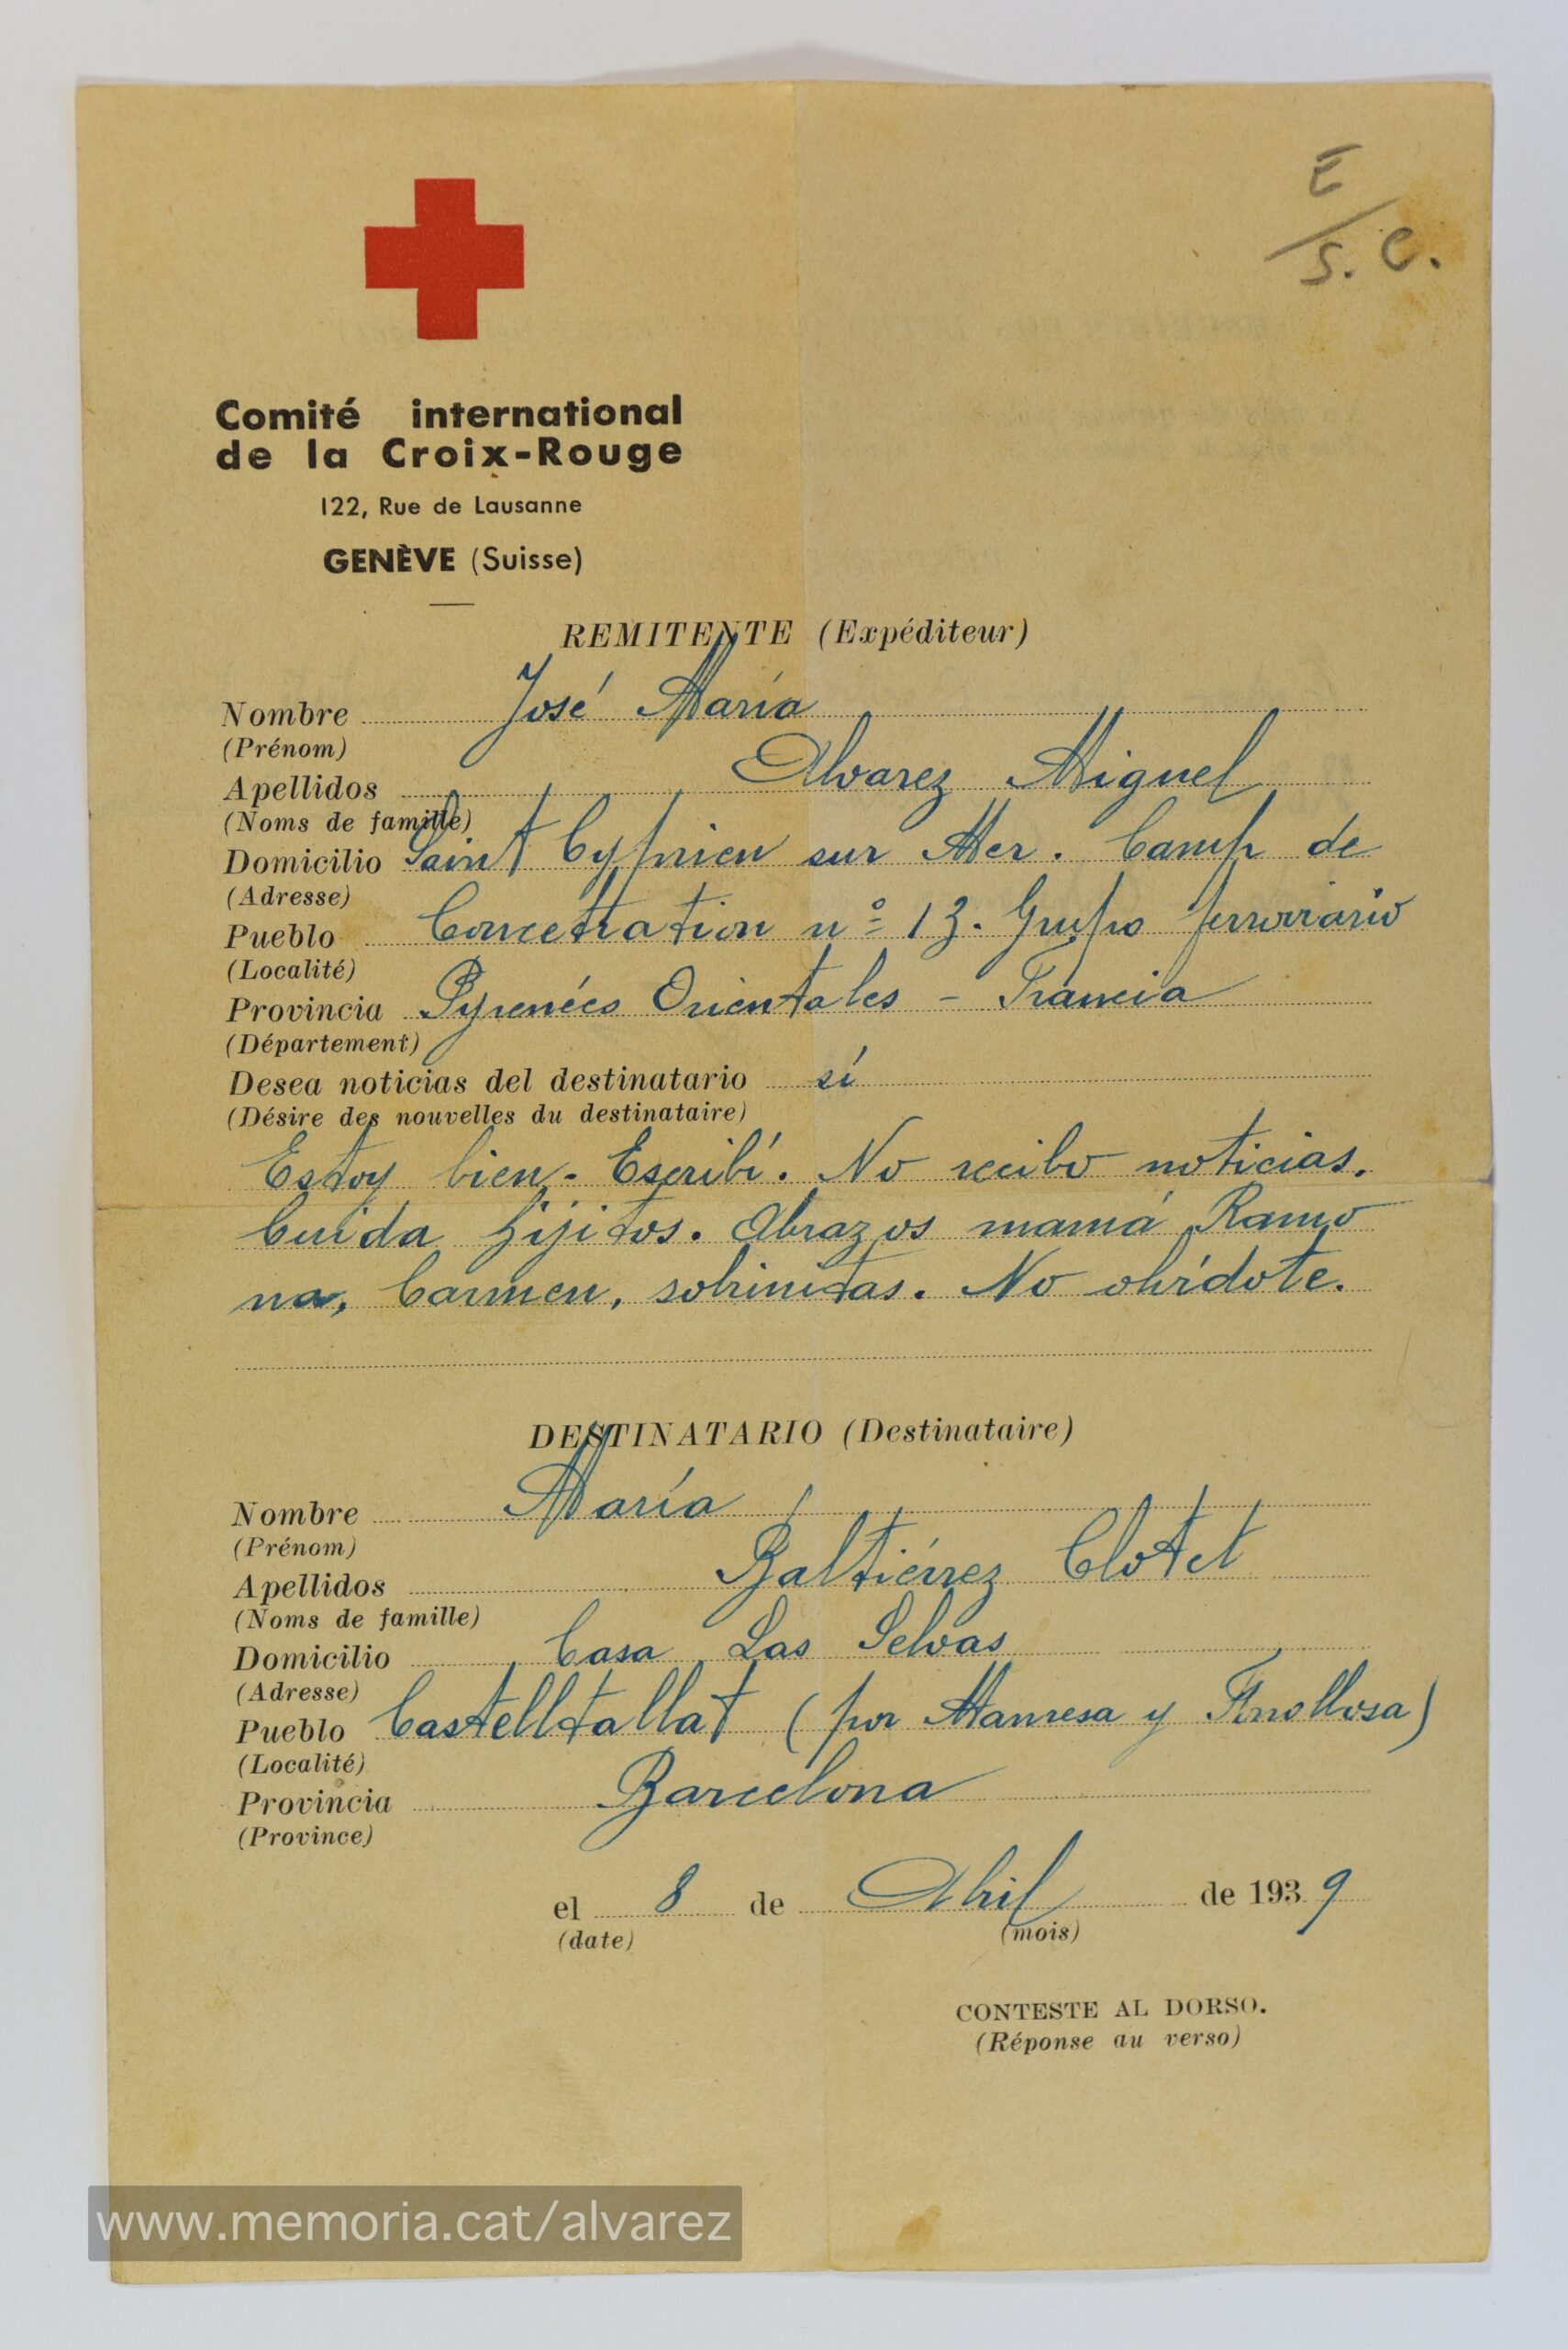 E
/
S. C.
Comité international
de la Croix-Rouge
122, Rue de Lausanne
GENÈVE (Suisse)
REMITENTE (Expéditeur)
Nombre José María
(Prénom)
Apellidos Alvarez Miguel
(Noms de famille)
Domicilio Saint Cyprien sur Mer. Camp de
(Adresse)
Pueblo Concetration nº 13. Grupo ferroviario
(Localité)
Provincia Pyrenées Orientales - Francia
(Département)
Desea noticias del destinatario sí
(Désire des nouvelles du destinataire)
Estoy bien - Escribí. No recibo noticias.
Cuida hijitos. Abrazos mamá Ramo
na, Carmen, sobrinitas. No olvídote.
DESTINATARIO (Destinataire)
Nombre María
(Prénom)
Apellidos Baltiérrez Clotet
(Noms de famille)
Domicilio Casa Las Selvas
(Adresse)
Pueblo Castelltallat (por Manresa y Fonollosa)
(Localité)
Provincia Barcelona
(Province)
el 8 de Abril de 1939
(date) (mois)
CONTESTE AL DORSO.
(Réponse au verso)
www.memoria.cat/alvarez